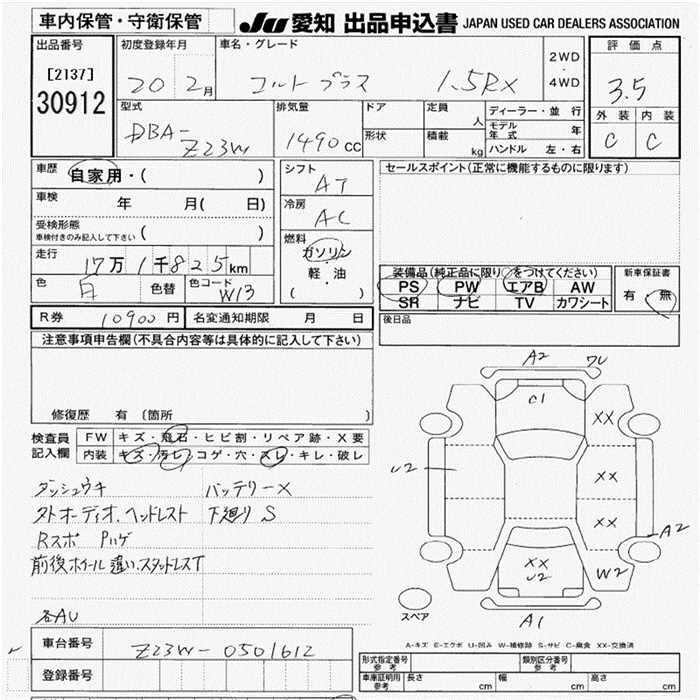 車内保管・守衛保管
JU 愛知 出品申込書 JAPAN USED CAR DEALERS ASSOCIATION
出品番号
[2137]
30912
初度登録年月
20 2月
車名・グレード
コルトプラス 1.5RX
2WD
・
4WD
評価点
3.5
外装 内装
C C
型式
DBA-
Z23W
排気量
1490 cc
ドア
形状
定員
人
積載
kg
ディーラー・並行
モデル年式 年
ハンドル 左・右
車歴
自家用・( )
車検
年 月( 日)
受検形態
車検付きのみ記入して下さい ( )
走行
17万1千825km
色
白
色替
色コード
W13
シフト
AT
冷房
AC
燃料
ガソリン
軽・油
( )
セールスポイント(正常に機能するものに限ります)
装備品(純正品に限り○をつけてください)
PS PW エアB AW
SR ナビ TV カワシート
新車保証書
有・無
後日品
R券 10900円 名変通知期限 月 日
注意事項申告欄(不具合内容等は具体的に記入して下さい)
修復歴 有 〔箇所 〕
検査員
記入欄
FW キズ・飛石・ヒビ割・リペア跡・X要
内装 キズ・汚レ・コゲ・穴・スレ・キレ・破レ
ダッシュウキ バッテリーX
ストオーディオ、ヘッドレスト 下廻りS
Rスポ
前後ホイール違い、スタッドレスT
各AU
A2 ワレ
C1
XX
U2
XX
XX
A2
XX
U2
W2
スペア
A1
A-キズ E-エクボ U-凹み W-補修跡 S-サビ C-腐食 XX-交換済
車台番号 Z23W-0501612
登録番号
形式指定番号
参考
類別区分番号
参考
車庫証明用
参考
長さ cm 幅 cm 高さ cm